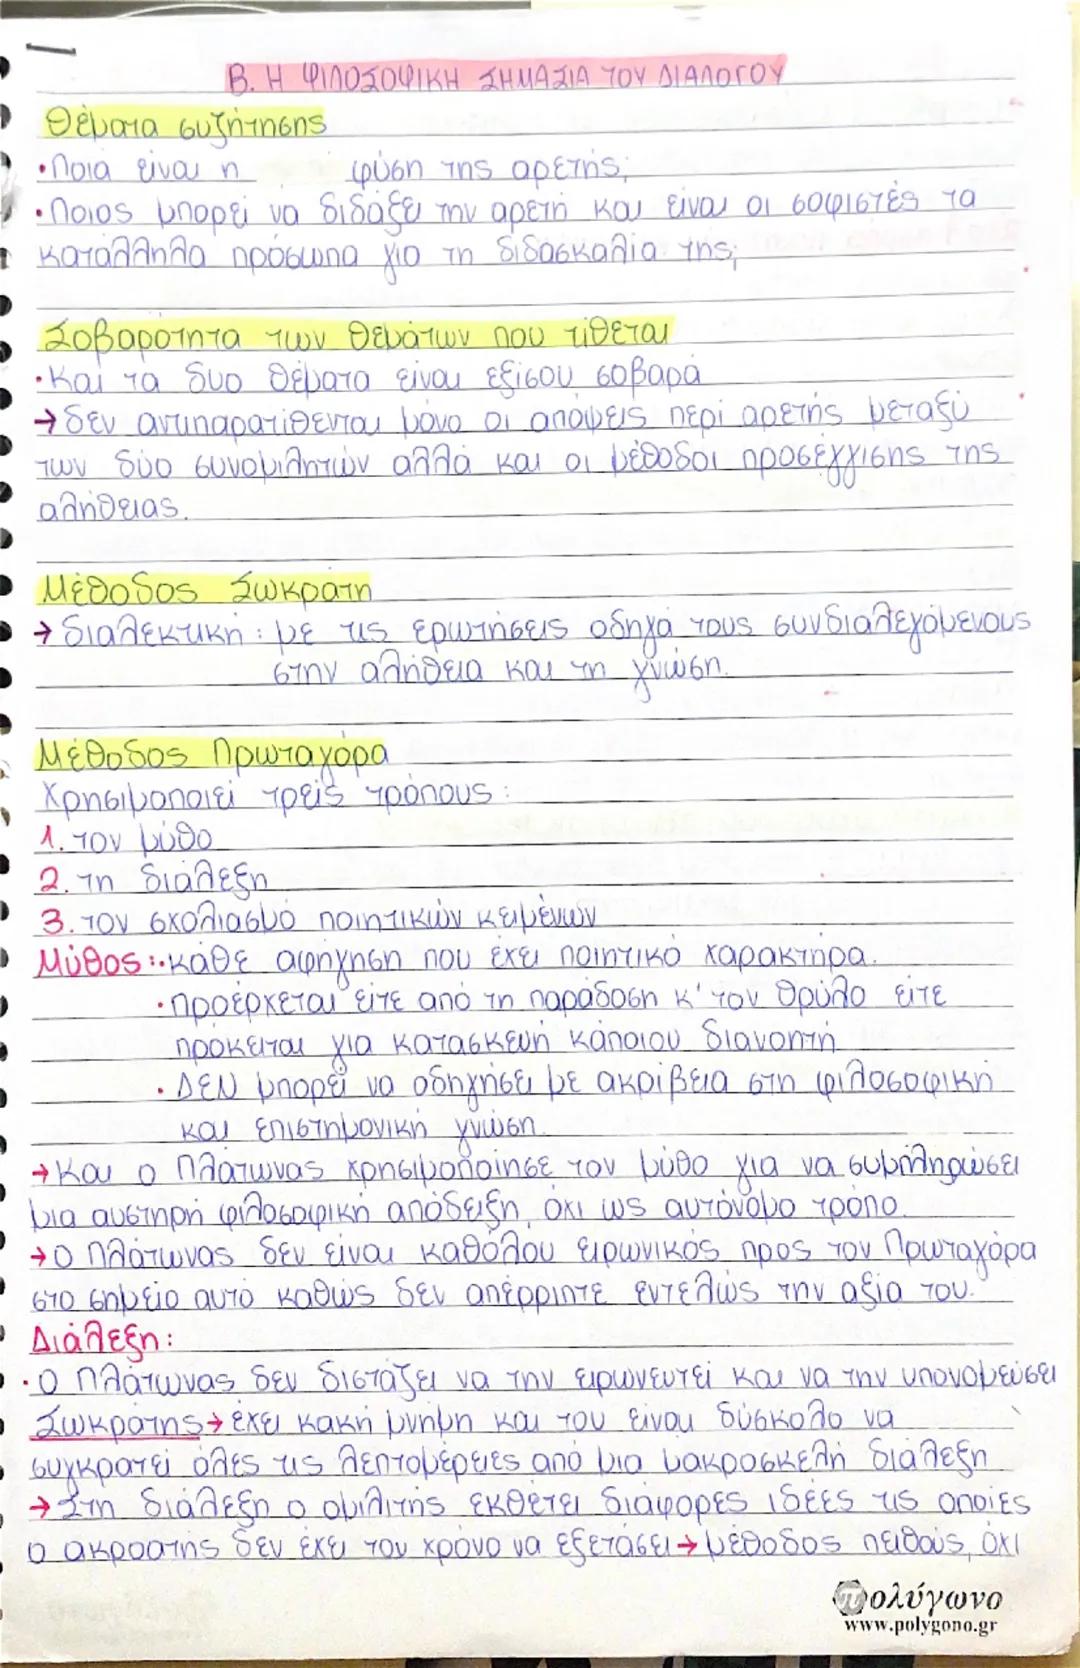 Β. Η ΦΙΛΟΣΟΦΙΚΗ ΣΗΜΑΣΙΑ ΤΟΥ ΔΙΑΛΟΓΟΥ
Θέματα συζήτησης
•Ποια είναι η φύση της αρετής;
•Ποιος μπορεί να διδάξει την αρετή και είναι οι σοφιστές τα
κατάλληλα πρόσωπα για τη διδασκαλία της;
Σοβαρότητα των θεμάτων που τίθεται
•Και τα δυο θέματα είναι εξίσου σοβαρά
→δεν αντιπαρατίθενται μόνο οι απόψεις περί αρετής μεταξύ
των δύο συνομιλητών αλλά και οι μέθοδοι προσέγγισης της
αλήθειας.
Μέθοδος Σωκράτη
→διαλεκτική: με τις ερωτήσεις οδηγά τους συνδιαλεγόμενους
στην αλήθεια και τη γνώση.
Μέθοδος Πρωταγόρα
Χρησιμοποιεί τρείς τρόπους:
1. τον μύθο
2. τη διάλεξη
3. τον σχολιασμό ποιητικών κειμένων
Μύθος:•κάθε αφήγηση που έχει ποιητικό χαρακτήρα.
•προέρχεται είτε από τη παράδοση κ' τον θρύλο είτε
πρόκειται για κατασκευή κάποιου διανοητή
•ΔΕΝ μπορεί να οδηγήσει με ακρίβεια στη φιλοσοφική
και επιστημονική γνώση.
→Και ο Πλάτωνας χρησιμοποίησε τον μύθο για να συμπληρώσει
μια αυστηρή φιλοσοφική απόδειξη, όχι ως αυτόνομο τρόπο.
→Ο Πλάτωνας δεν είναι καθόλου ειρωνικός προς τον Πρωταγόρα
στο σημείο αυτό καθώς δεν απέρριπτε εντελώς την αξία του.
Διάλεξη:
•Ο Πλάτωνας δεν διστάζει να την ειρωνευτεί και να την υπονομεύσει
Σωκράτης→έχει κακή μνήμη και του είναι δύσκολο να
συγκρατεί όλες τις λεπτομέρειες από μια μακροσκελή διάλεξη
→Στη διάλεξη ο ομιλιτής εκθέτει διάφορες ιδέες τις οποίες
ο ακροατής δεν έχει τον χρόνο να εξετάσει→μέθοδος πειθούς, όχι
πολύγωνο
www.polygono.gr